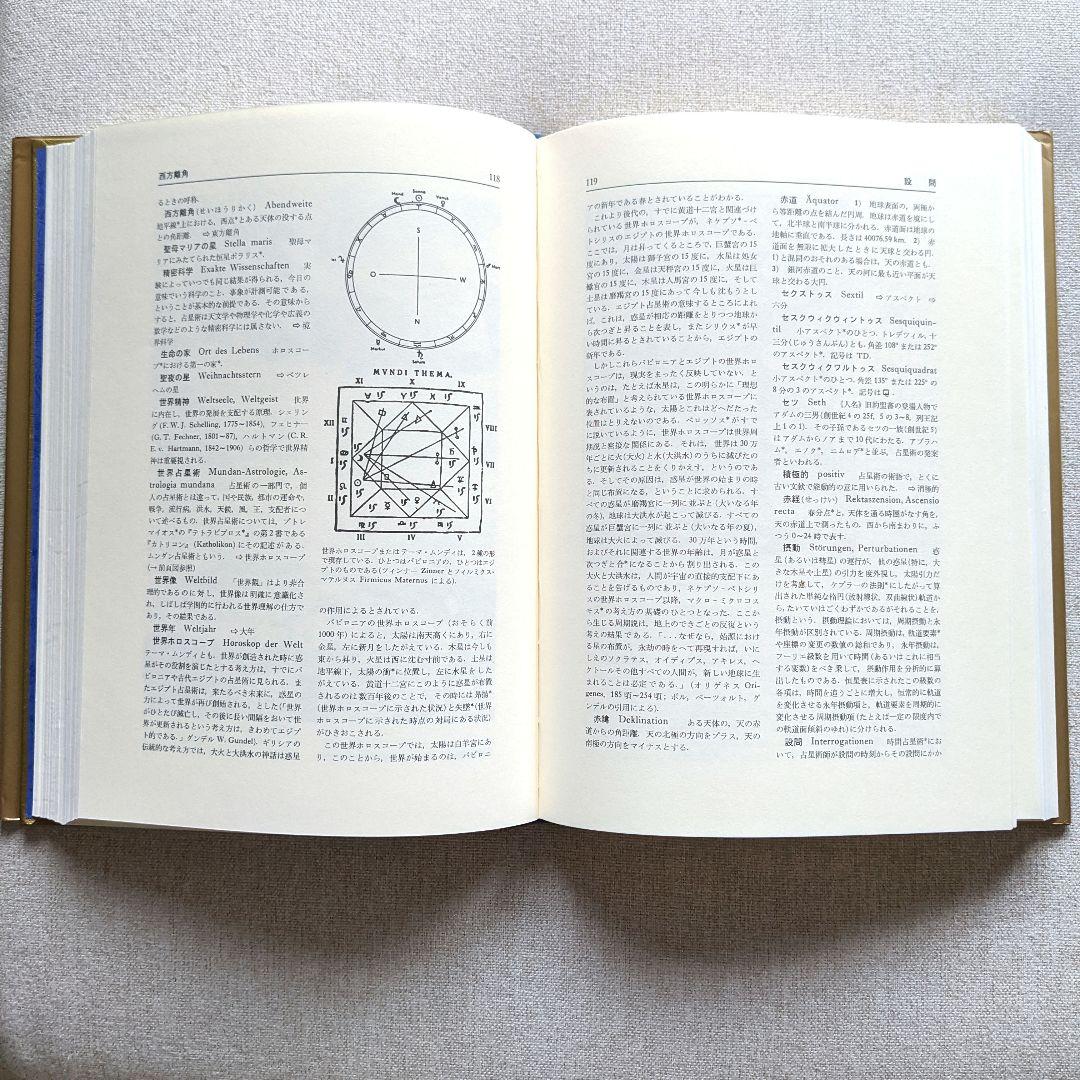 西方離角 118
るときの呼称.
西方離角(せいほうりかく) Abendweite
地平線*上における, 西点*とある天体の没する点
との角距離. ⇨東方離角
聖母マリアの星 Stella maris 聖母マ
リアにみたてられた恒星ポラリス*.
精密科学 Exakte Wissenschaften 実
験によっていつでも同じ結果が得られる, 今日の
意味でいう科学のこと. 事象が計測可能である,
ということが基本的な前提である. その意味から
すると, 占星術は天文学や物理学や化学や広義の
数学などのような精密科学には属さない.
界科学
生命の家 Ort des Lebens ホロスコー
プ*における第一の家*.
聖夜の星 Weihnachtsstern ⇨ベツレ
ヘムの星
世界精神 Weltseele, Weltgeist 世界
に内在し, 世界の発展を支配する原理. シェリン
グ(F. W. J. Schelling, 1775~1854), フェヒナー
(G. T. Fechner, 1801~87), ハルトマン(C. R.
E. v. Hartmann, 1842~1906) らの哲学で世界精
神は重要視される.
世界占星術 Mundan-Astrologie, As-
trologia mundana 占星術の一部門で, 個
人の占星術とは違って, 国や民族, 都市の運命や,
戦争, 流行病, 洪水, 天候, 風, 王, 支配者につい
て述べるもの. 世界占星術については, プトレ
マイオス*の『テトラビブロス*』の第2書である
『カトリコン』(Katholikon)にその記述がある.
ムンダン占星術ともいう. ⇨世界ホロスコープ
(→前頁図参照)
世界像 Weltbild 「世界観」はより非合
理的であるのに対し, 世界像は明確に意識化さ
れ, しばしば学問的に行われる世界理解の仕方で
あり, その結果である.
世界年 Weltjahr ⇨大年
世界ホロスコープ Horoskop der Welt
テーマ・ムンディとも. 世界が創造された時に惑
星がその役割を演じたとする考え方は, すでにバ
ビロニアや古代エジプトの占星術に見られる. ま
たエジプト占星術は, 来たるべき未来に, 惑星の
力によって世界が再び創始される, とした(「世界
がひとたび滅亡し, その後に長い間隔をおいて世
界が更新されるという考え方は, きわめてエジプ
ト的である.」グンデル W. Gundel). ギリシアの
伝統的な考え方では, 大火と大洪水の神話は惑星
Mond Sonne Venus
Mars
S
O W
N
Merkur Saturn
MVNDI THEMA.
XI X IX
XII VIII
I VII
II VI
III IV V
世界ホロスコープまたはテーマ・ムンディは, 2種の形
で現存している. ひとつはバビロニアの, ひとつはエジ
プトのものである(ツィンナー Zinner とフィルミクス・
マテルヌス Firmicus Maternus による).
の作用によるとされている.
バビロニアの世界ホロスコープ (おそらく前
1000年)によると, 太陽は南天高くにあり, 右に
金星, 左に新月をしたがえている. 木星は今しも
東から昇り, 火星は西に沈む寸前である. 土星は
地平線下, 太陽の衝*に位置し, 左に水星をした
がえている. 黄道十二宮にこのように惑星が布置
されるのは数百年後のことで, その時には昂揚*
(世界ホロスコープに示された状況)と失墜*(世界
ホロスコープに示された時点の対向にある状況)
がひきおこされる.
この世界ホロスコープでは, 太陽は白羊宮にあ
り, このことから, 世界が始まるのは, バビロニ
119 設問
アの新年である春とされていることがわかる.
これより後代の, すでに黄道十二宮と関連づけ
られている世界ホロスコープが, ネケプソ*-ペ
トシリスのエジプトの世界ホロスコープである.
ここでは, 月は昇ってくるところで, 巨蟹宮の15
度にあり, 太陽は獅子宮の15度に, 水星は処女
宮の15度に, 金星は天秤宮の15度に, 火星は巨
蠍宮の15度に, 木星は人馬宮の15度に, そして
土星は磨羯宮の15度にあって今しも沈もうとし
ている. エジプト占星術の意味するところによれ
ば, これは, 惑星が相応の距離をとりつつ地球か
ら次つぎと昇ることを表し, またシリウス*が早
い時間に昇るとされていることから, エジプトの
新年である.
しかしこれらバビロニアとエジプトの世界ホロ
スコープは, 現実をまったく反映していない. と
いうのは, たとえば水星は, この明らかに「理想
的な布置」と考えられている世界ホロスコープに
表されているような, 太陽とこれほどへだたった
位置はとりえないのである. ベロッソス*がすで
に説いているように, 世界ホロスコープは世界周
期説と密接な関係にある. それは, 世界は30万
年ごとに火(大火)と水(大洪水)のうちに滅びたの
ちに更新されることをくりかえす, というのであ
る. そしてその原因は, 惑星が世界の始まりの時
と同じ布置になる, ということに求められる. す
べての惑星が磨羯宮に一列に並ぶと(大いなる年
の冬), 地球は大洪水が起こって滅びる. すべての
惑星が巨蟹宮に一列に並ぶと(大いなる年の夏),
地球は大火によって滅びる. 30万年という時間,
およびそれに関連する世界の年齢は, 月が惑星と
次つぎと合*になることから割り出される. この
大火と大洪水は, 人間が宇宙の直接的支配下にあ
ることを告げるものであり, ネケプソ-ペトシリ
スの世界ホロスコープ以降, マクロ-ミクロコス
モス*の考え方の基礎のひとつとなった. ここか
ら生じる周期説は, 地上のできごとの反復という
考えの結果である.「...なぜなら, 始源におけ
る星の布置が, 永劫の時をへて再現すれば, いに
しえのソクラテス, オイディプス, アキレス, ヘ
クトールその他すべての人間が, 新しい地球に生
まれることは必定である.」(オリゲネス Ori-
genes, 185頃~254頃; ボル, ベーツォルト, グ
ンデルの引用による).
赤緯 Deklination ある天体の, 天の赤
道からの角距離. 天の北極の方向をプラス, 天の
南極の方向をマイナスとする.
赤道 Äquator 1) 地球表面の, 両極か
ら等距離の点を結んだ円周. 地球は赤道を境にし
て, 北半球と南半球に分かれる. 赤道面は地球の
地軸に垂直である. 長さは40076.59 km. 2) 赤
道面を無限に拡大したときに天球と交わる円.
1)と混同のおそれのある場合は, 天の赤道とも.
3) 銀河赤道のこと. 天の河に最も近い平面が天
球と交わる大円.
セクストゥス Sextil ⇨アスペクト ⇨
六分
セスクウィクウィントゥス Sesquiquin-
til 小アスペクト*のひとつ. トレデツィル, 十
三分(じゅうさんぶん)とも. 角差108°または252°
のアスペクト*. 記号は TD.
セスクウィクワルトゥス Sesquiquadrat
小アスペクト*のひとつ. 角差135°または225°の
8分の3のアスペクト*. 記号は⚼.
セツ Seth 《人名》旧約聖書の登場人物で
アダムの三男(創世紀4の25f, 5の3~8, 列王記
上1の1). その子孫であるセツの一族(創世紀5)
はアダムからノアまで10代にわたる. アブラハ
ム*, エノク*, ニムロデ*と並ぶ, 占星術の発案
者といわれる.
積極的 positiv 占星術の術語で, とくに
古い文献で能動的の意に用いられた. ⇨消極的
赤経(せっけい) Rektaszension, Ascensio
recta 春分点*と, 天体を通る時圏がなす角を,
天の赤道上で測ったもの. 西から南まわりに, ふ
つう0~24時で表す.
摂動 Störungen, Perturbationen 惑
星(あるいは彗星)の運行が, 他の惑星(特に, 大
きな木星や土星)の引力を度外視し, 太陽引力だ
けを考慮して, ケプラーの法則*にしたがって算
出された単純な楕円(放射線状, 双曲線状)軌道か
ら, たいていはごくわずかであるがそれることを,
摂動という. 摂動理論においては, 周期摂動と永
年摂動が区別されている. 周期摂動は, 軌道要素*
や座標の変更の数値の総和であり, 永年摂動は,
フーリエ級数を用いて時間(あるいはこれに相当
する変数)をべき乗して, 摂動作用を分析的に算
出したものである. 恒星表に示されたこの級数の
各項は, 時間を追うごとに増大し, 恒常的に軌道
を変化させる永年摂動項と, 軌道要素を周期的に
変化させる周期摂動項(たとえば一定の限度内で
の軌道面傾斜のゆれ)に分けられる.
設問 Interrogationen 時間占星術*にお
いて, 占星術師が設問の時刻からその設問にかか